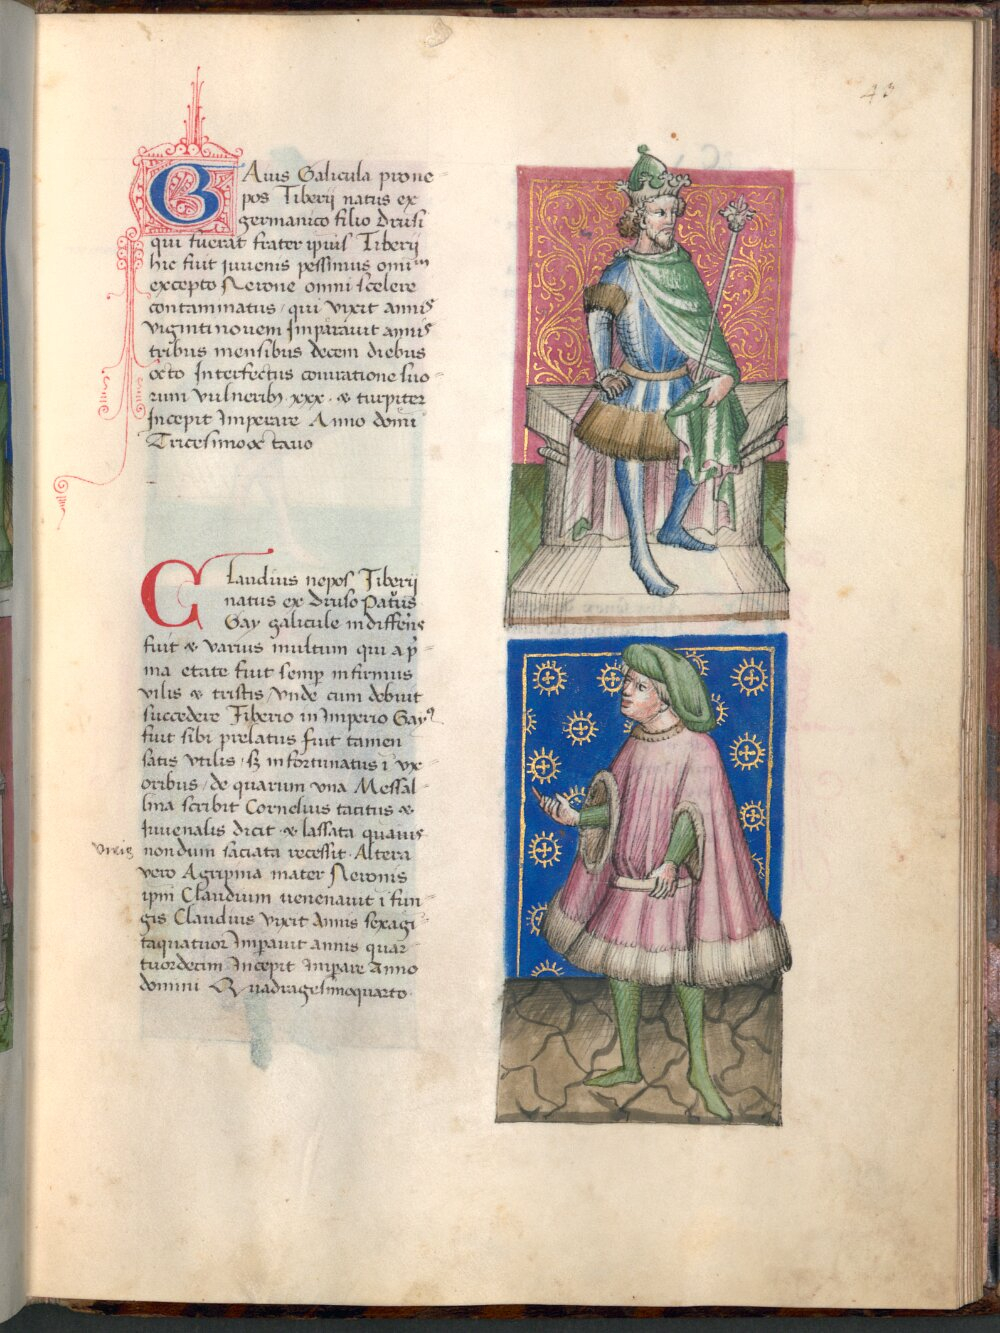 43
GAius Galicula prone
pos Tiberij natus ex
germanico filio Drusi
qui fuerat frater ipius Tiberij
hic fuit iuvenis pessimus omiu͞m
excepto Nerone omni scelere
contaminatus / qui vixit annis
viginti novem Imparavit annis
tribus mensibus decem diebus
octo Interfectus coniuratione suo
rum vulneribȝ xxx · & turpiter
Incepit Imperare Anno domi
Tricesimo octavo
Claudius nepos Tiberij
natus ex Druso Patrus
Gay galicule indifferis
fuit & varius multum qui a p̄i
ma etate fuit semp infirmus
vilis & tristis / vnde cum debuit
succedere Tiberio in Imperio Gayꝰ
fuit sibi prelatus fuit tamen
satis vtilis / sȝ infortunatus ī vx
oribus / de quarum vna Messal
lina scribit Cornelius tacitus &
Iuvenalis dicit & lassata quavis
viris nondum saciata recessit · Altera
vero Agripina mater Neronis
ipm̄ Claudium venenavit ī fun
gis Claudius vixit Annis sexagi
taquatuor Impavit annis quar
tuordecim Incepit Impare Anno
domini Quadragesimoquarto